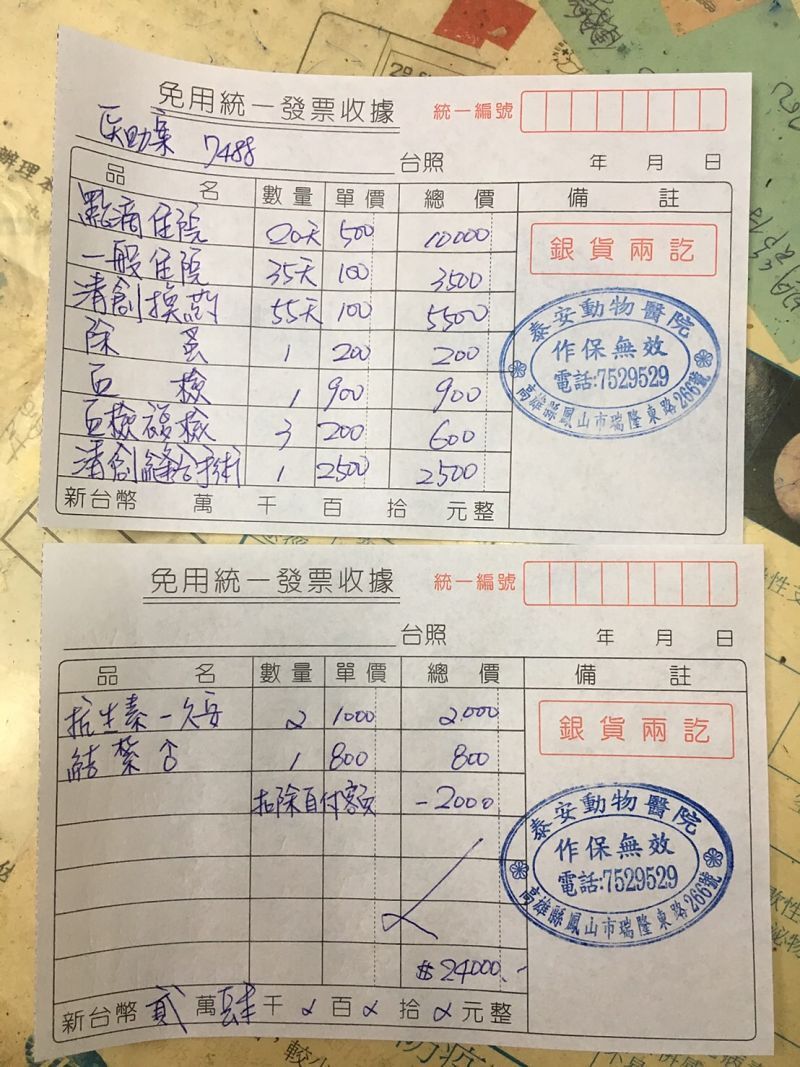 免用統一發票收據 統一編號
醫助案 7488 台照 年 月 日
品名 數量 單價 總價 備註
點滴住院 20天 500 10000
一般住院 35天 100 3500
清創換葯 55天 100 5500
除蚤 1 200 200
血檢 1 900 900
血檢複檢 3 200 600
清創縫合手術 1 2500 2500
新台幣 萬 千 百 拾 元整
銀貨兩訖
泰安動物醫院
作保無效
電話:7529529
高雄縣鳳山市瑞隆東路266號
免用統一發票收據 統一編號
台照 年 月 日
品名 數量 單價 總價 備註
抗生素一久安 2 1000 2000
結紮♂ 1 800 800
扣除自付額 -2000
$24000.-
新台幣 貳 萬 肆 千 百 拾 元整
銀貨兩訖
泰安動物醫院
作保無效
電話:7529529
高雄縣鳳山市瑞隆東路266號